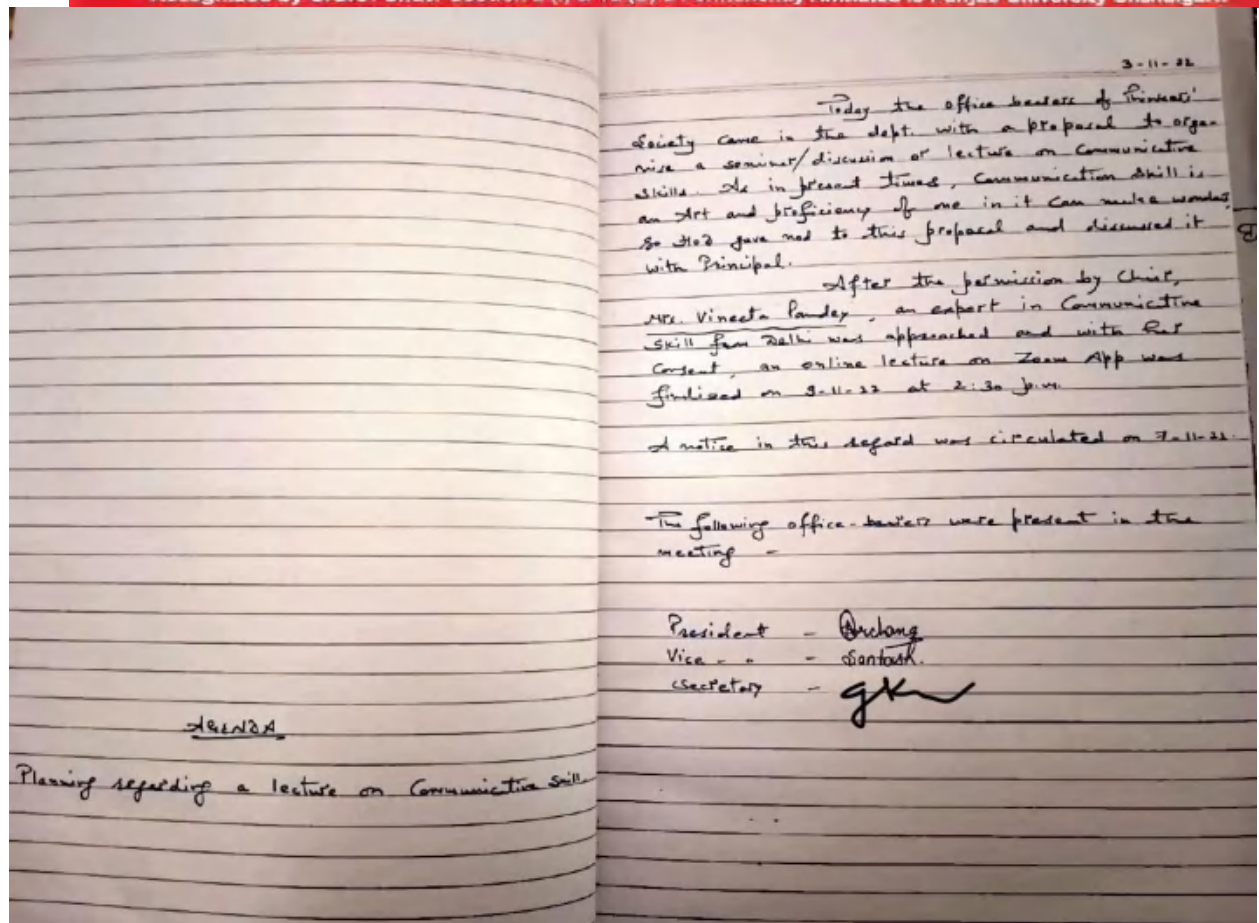 AGENDA
Planning regarding a lecture on Communicative Skill
3-11-22
Today the office bearers of Thinkers'
Society came in the dept. with a proposal to orga-
nise a seminar/discussion or lecture on Communicative
Skills. As in present times, Communication Skill is
an Art and proficiency of one in it can make wonders,
So HoD gave nod to this proposal and discussed it
with Principal.
After the permission by Chair,
Mrs. Vineeta Pandey, an expert in Communicative
Skill from Delhi was approached and with her
Consent, an online lecture on Zoom App was
finalised on at 2:30 p.m.
A notice in this regard was circulated on 7-11-22.
The following office-bearers were present in the
meeting -
President - Archana
Vice - " - Santosh.
Secretary -